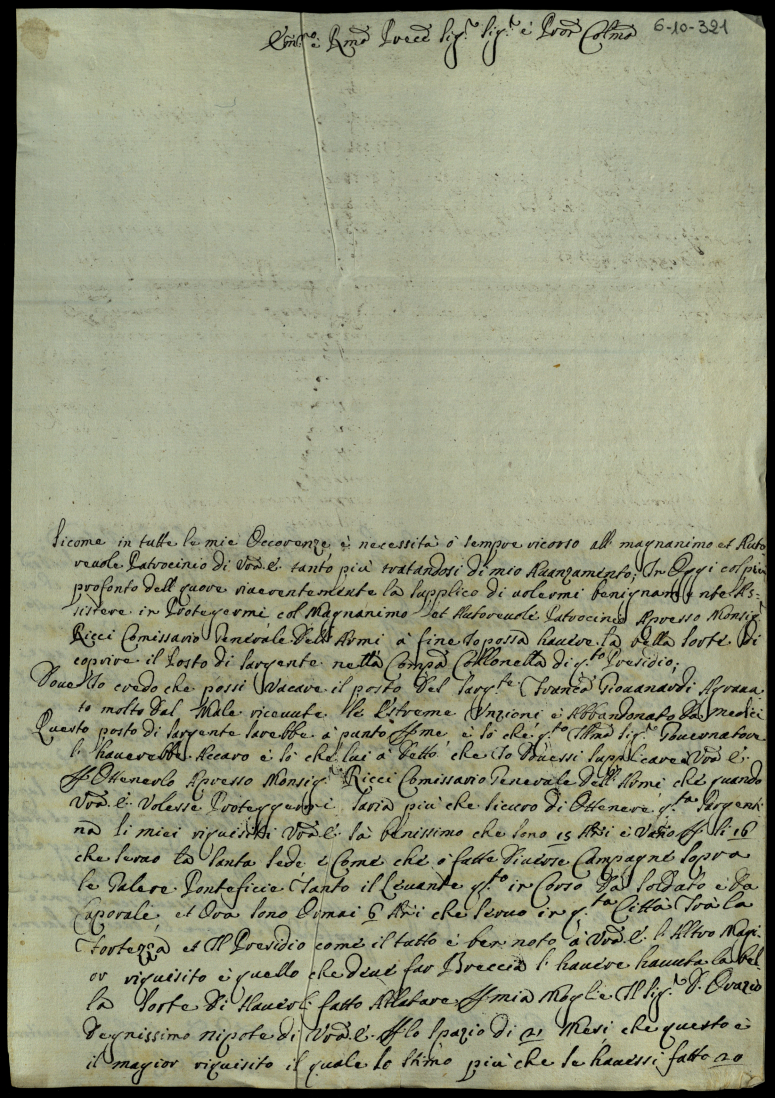 6-10-321
Em:º e Rmo Pred Sig:r Sig:r é Pron Colmo
Sicome in tutte le mie Occorenze é necessità ó sempre ricorso all magnanimo et Auto
reuole Patrocinio di Vra É. tanto più tratandosi di mio Auanzamento; In Oggi col più
profonto dell quore riuerentemente la Supplico di uolermi benignamente As-
sistere in Protegermi col Magnanimo et Autoreuole Patrocineo Apresso Monsig:r
Ricci Comissario Generale dell Armi á fine Io possa hauere la bella Sorte di
coprire il Posto di Sargente nella Compa Collonella di q:to Presidio;
Doue Io credo che possi Vacare il posto del Sarg:te Franco Giouanardi Agraua
to molto dal Male riceuute le Estreme Unzioni é Abbandonato da medici
Questo posto di Sargente Sarebbe á punto p me é ló ché q:to Illmo Sig:r Gouernatore
l hauerebbe Accaro é ló ché lui á detto ché Io douessi Supplicare Vra É.
p Ottenerlo Apresso Monsig:r Ricci Comissario Generale dell Armi ché quando
Vra É. Volesse Proteggermi Saria piu che sicuro di Ottenere q:ta Sargenti
na li miei riquisiti Vra É. Sá benissimo che sono 15 Ani é Vano p li 16
che seruo la Santa Sede é Comé ché ó fatte diuerse Campagné Sopra
le Galere Pontificie Tanto il Leuante q:to in Corso da Soldato é da
Caporale et Ora Sono Ormai 6 Ani che Seruo in q:ta Città Trá la
Fortezza et Il Presidio comé il tutto é ben noto á Vra É. l Altro Magi-
or riquisito é quello che deué far Breccia l hauere hauuta la bel
la Sorte di Hauerli fatto Allatare p mia Moglie Il Sig:r D. Orazio
Degnissimo nipote di Vra É. p lo Spazio di 21 Mesi che questo é
il magior riquisito il quale lo stimo più che se hauessi fatto 20